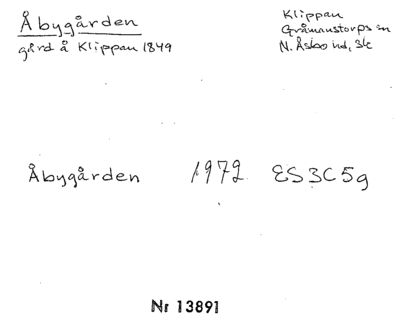 Åbygården
gård å Klippan 1849
Klippan
Gråmanstorps sn
N. Åsbo hd, Sk
Åbygården 1972 ES 3C5g
Nr 13891